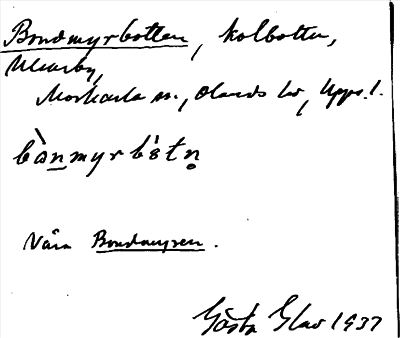 Bondmyrbotten, kolbotten,
Ulvarby,
Morkarla sn., Olands hd, Upps. l.
bònmyrbòtn̥
Nära Bondmyren.
Gösta Glav 1937